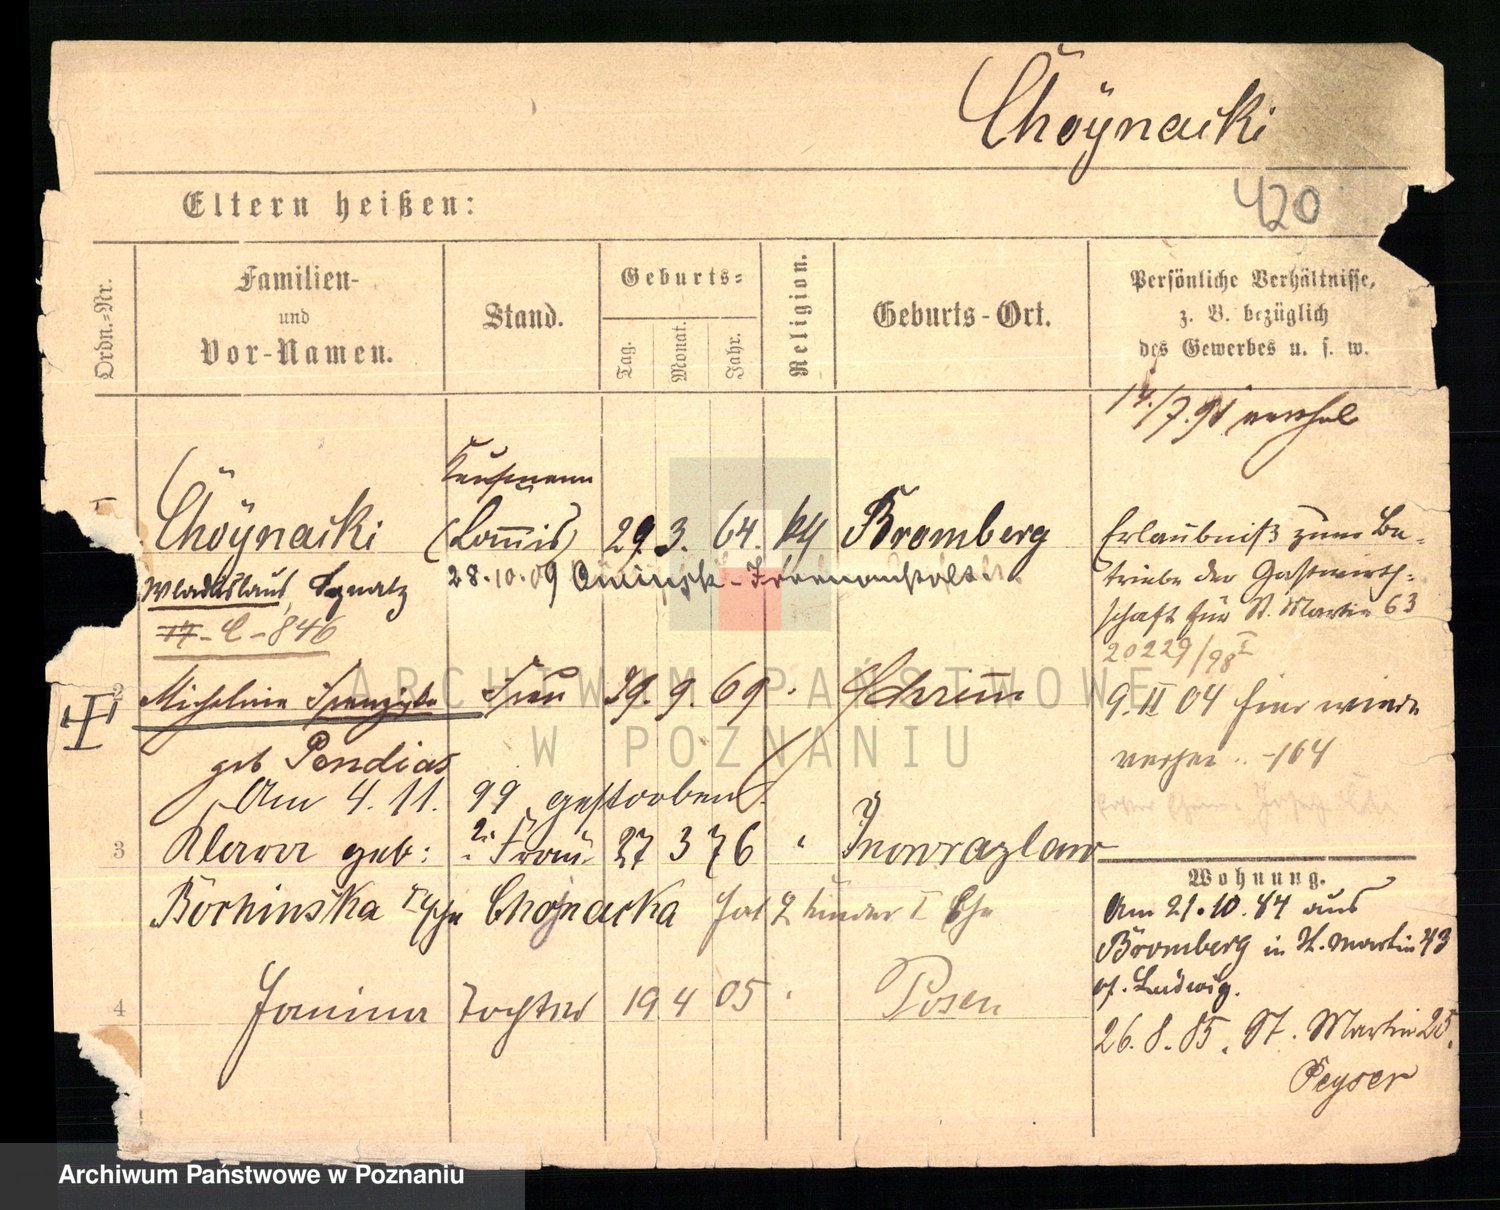 Choÿnacki
420
Eltern heißen:
Ordn.-Nr.
Familien-
und
Vor-Namen.
Stand.
Geburts-
Tag.
Monat.
Jahr.
Religion.
Geburts-Ort.
Persönliche Verhältnisse,
z. B. bezüglich
des Gewerbes u. s. w.
14./7.91 verehel
Kaufmann
1 Choÿnacki (Commis) 29 3. 64. kth Bromberg
Wladislaus, Ignatz 28.10.09
17-C-846
Erlaubniß zum Be-
triebe der Gastwirth-
schaft für St. Martin 63
20229/98 I
2 Michalina Franziska Frau 29. 9. 69 Schrimm
9. II 04 hier wieder
verhei -164
geb Pendias
Am 4. 11. 99 gestorben.
3 Klara geb: 2. Frau 27 3 76 " Inowrazlaw
Borhinska Choÿnacka hat 2 Kinder I Ehe
4 Janina Tochter 19 4 05 " Posen
Wohnung.
Am 21.10.84 aus
Bromberg in St. Martin 43
b/. Ludwig.
26.8.85. St. Martin 25.
Peyser
ARCHIWUM PAŃSTWOWE
W POZNANIU
Archiwum Państwowe w Poznaniu